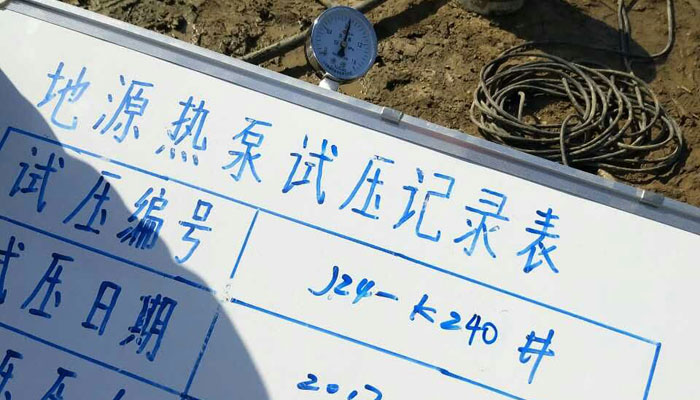 地源热泵试压记录表
试压编号 J24-K240井
试压日期 2017